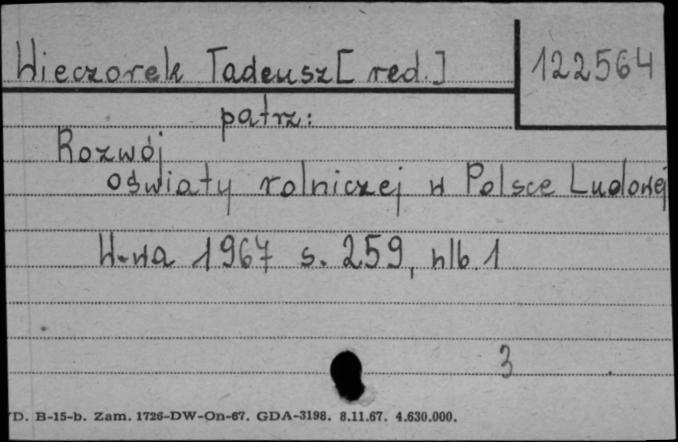 Wieczorek Tadeusz [red.]
122564
patrz:
Rozwój
oświaty rolniczej w Polsce Ludowej
W-wa 1967 s. 259, nlb. 1
3
D. B-15-b. Zam. 1726-DW-On-67. GDA-3198. 8.11.67. 4.630.000.